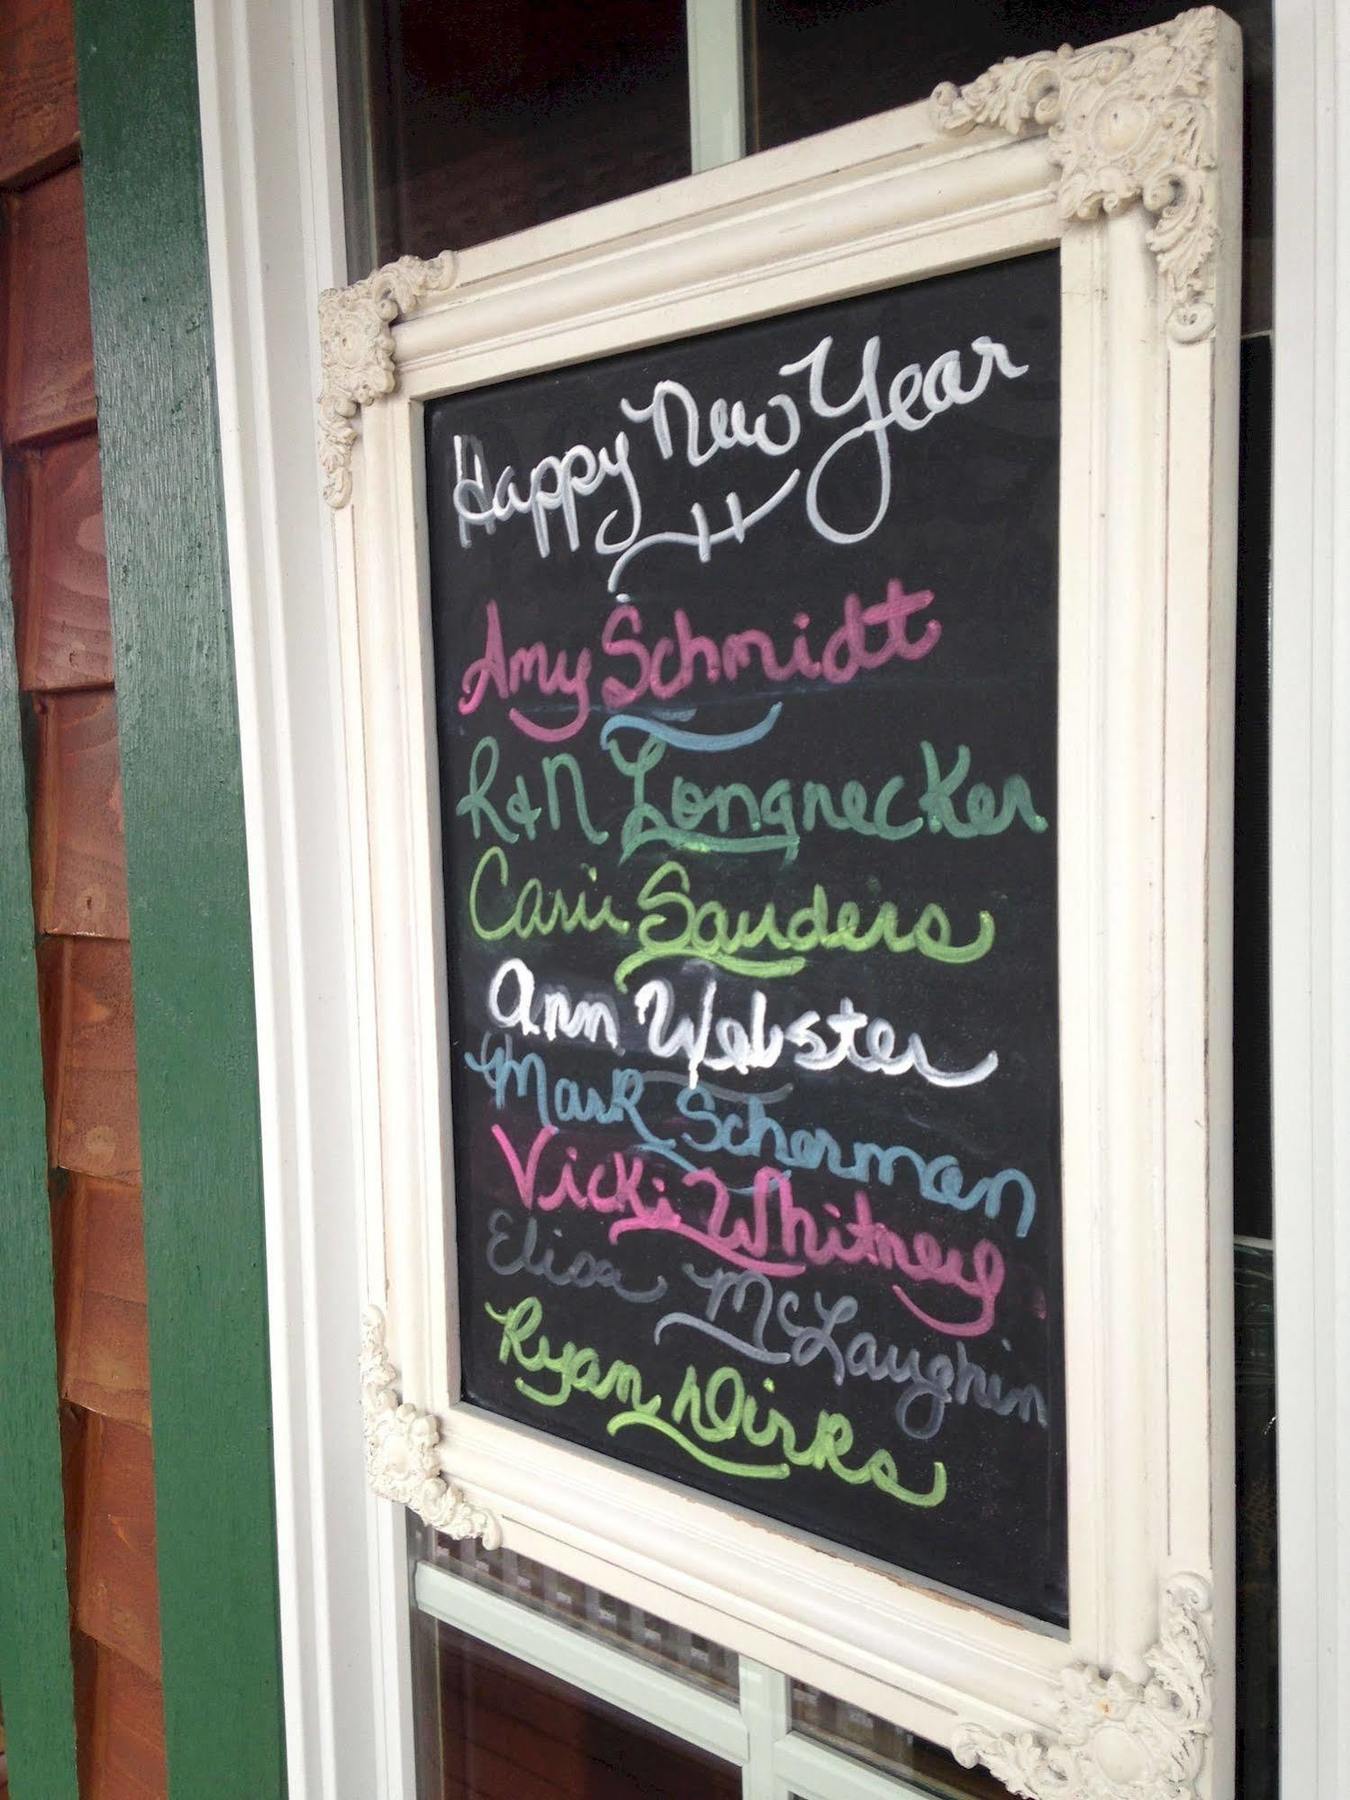 Happy New Year
Amy Schmidt
R & N Longnecker
Carii Sauders
Ann Webster
Mark Scherman
Vicki Whitney
Elisa McLaughin
Ryan Dirks